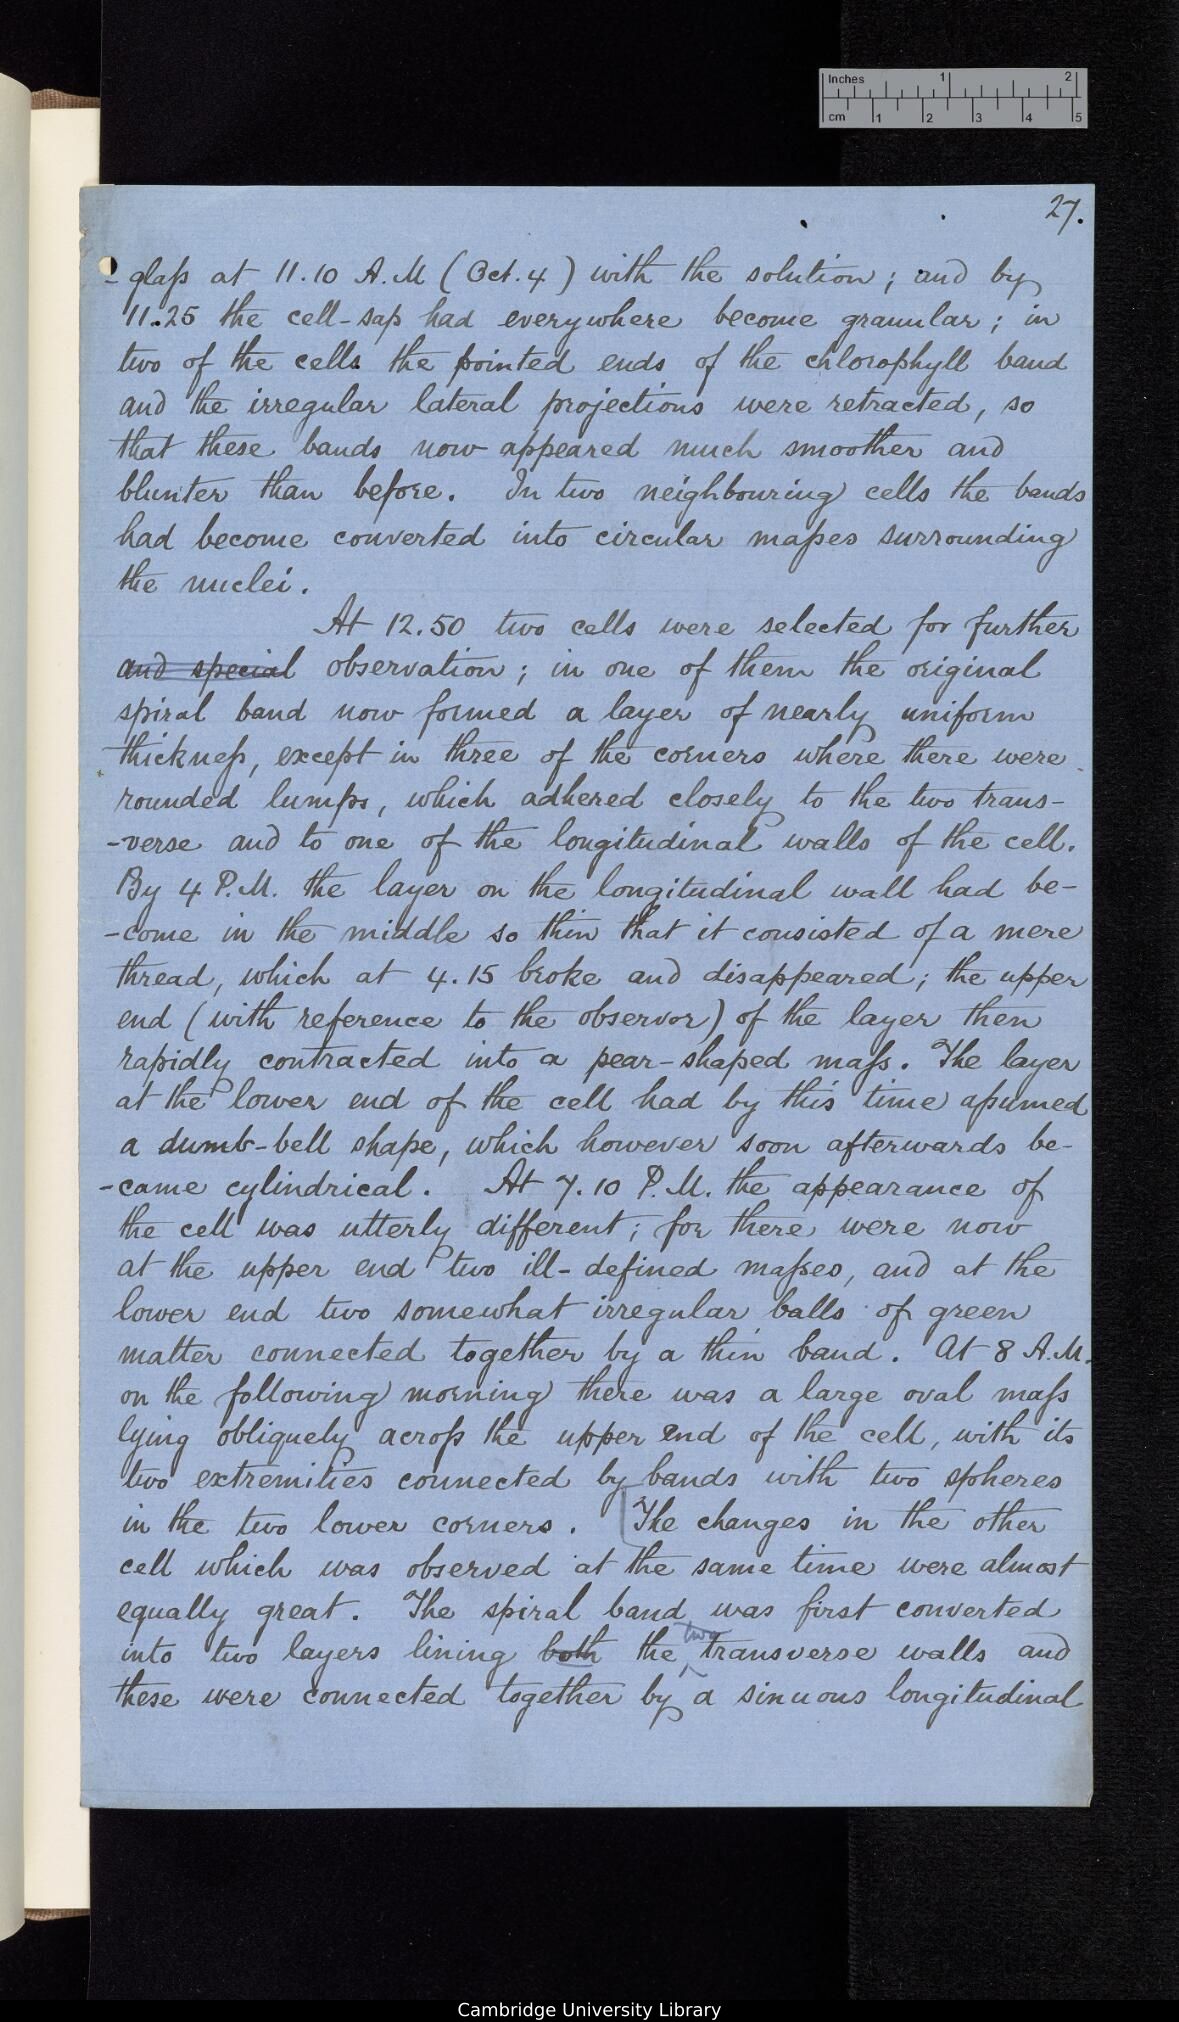 Inches 1 2
cm 1 2 3 4 5
27.
-glass at 11.10 A.M (Oct. 4) with the solution; and by
11.25 the cell-sap had everywhere become granular; in
two of the cells the pointed ends of the chlorophyll band
and the irregular lateral projections were retracted, so
that these bands now appeared much smoother and
blunter than before. In two neighbouring cells the bands
had become converted into circular masses surrounding
the nuclei.
At 12.50 two cells were selected for further
and special observation; in one of them the original
spiral band now formed a layer of nearly uniform
thickness, except in three of the corners where there were
rounded lumps, which adhered closely to the two trans-
-verse and to one of the longitudinal walls of the cell.
By 4 P.M. the layer on the longitudinal wall had be-
-come in the middle so thin that it consisted of a mere
thread, which at 4.15 broke and disappeared; the upper
end (with reference to the observor) of the layer then
rapidly contracted into a pear-shaped mass. The layer
at the lower end of the cell had by this time assumed
a dumb-bell shape, which however soon afterwards be-
-came cylindrical. At 7.10 P.M. the appearance of
the cell was utterly different; for there were now
at the upper end two ill-defined masses, and at the
lower end two somewhat irregular balls of green
matter connected together by a thin band. At 8 A.M.
on the following morning there was a large oval mass
lying obliquely across the upper end of the cell, with its
two extremities connected by bands with two spheres
in the two lower corners. [The changes in the other
cell which was observed at the same time were almost
equally great. The spiral band was first converted
into two layers lining both the two transverse walls and
these were connected together by a sinuous longitudinal
Cambridge University Library